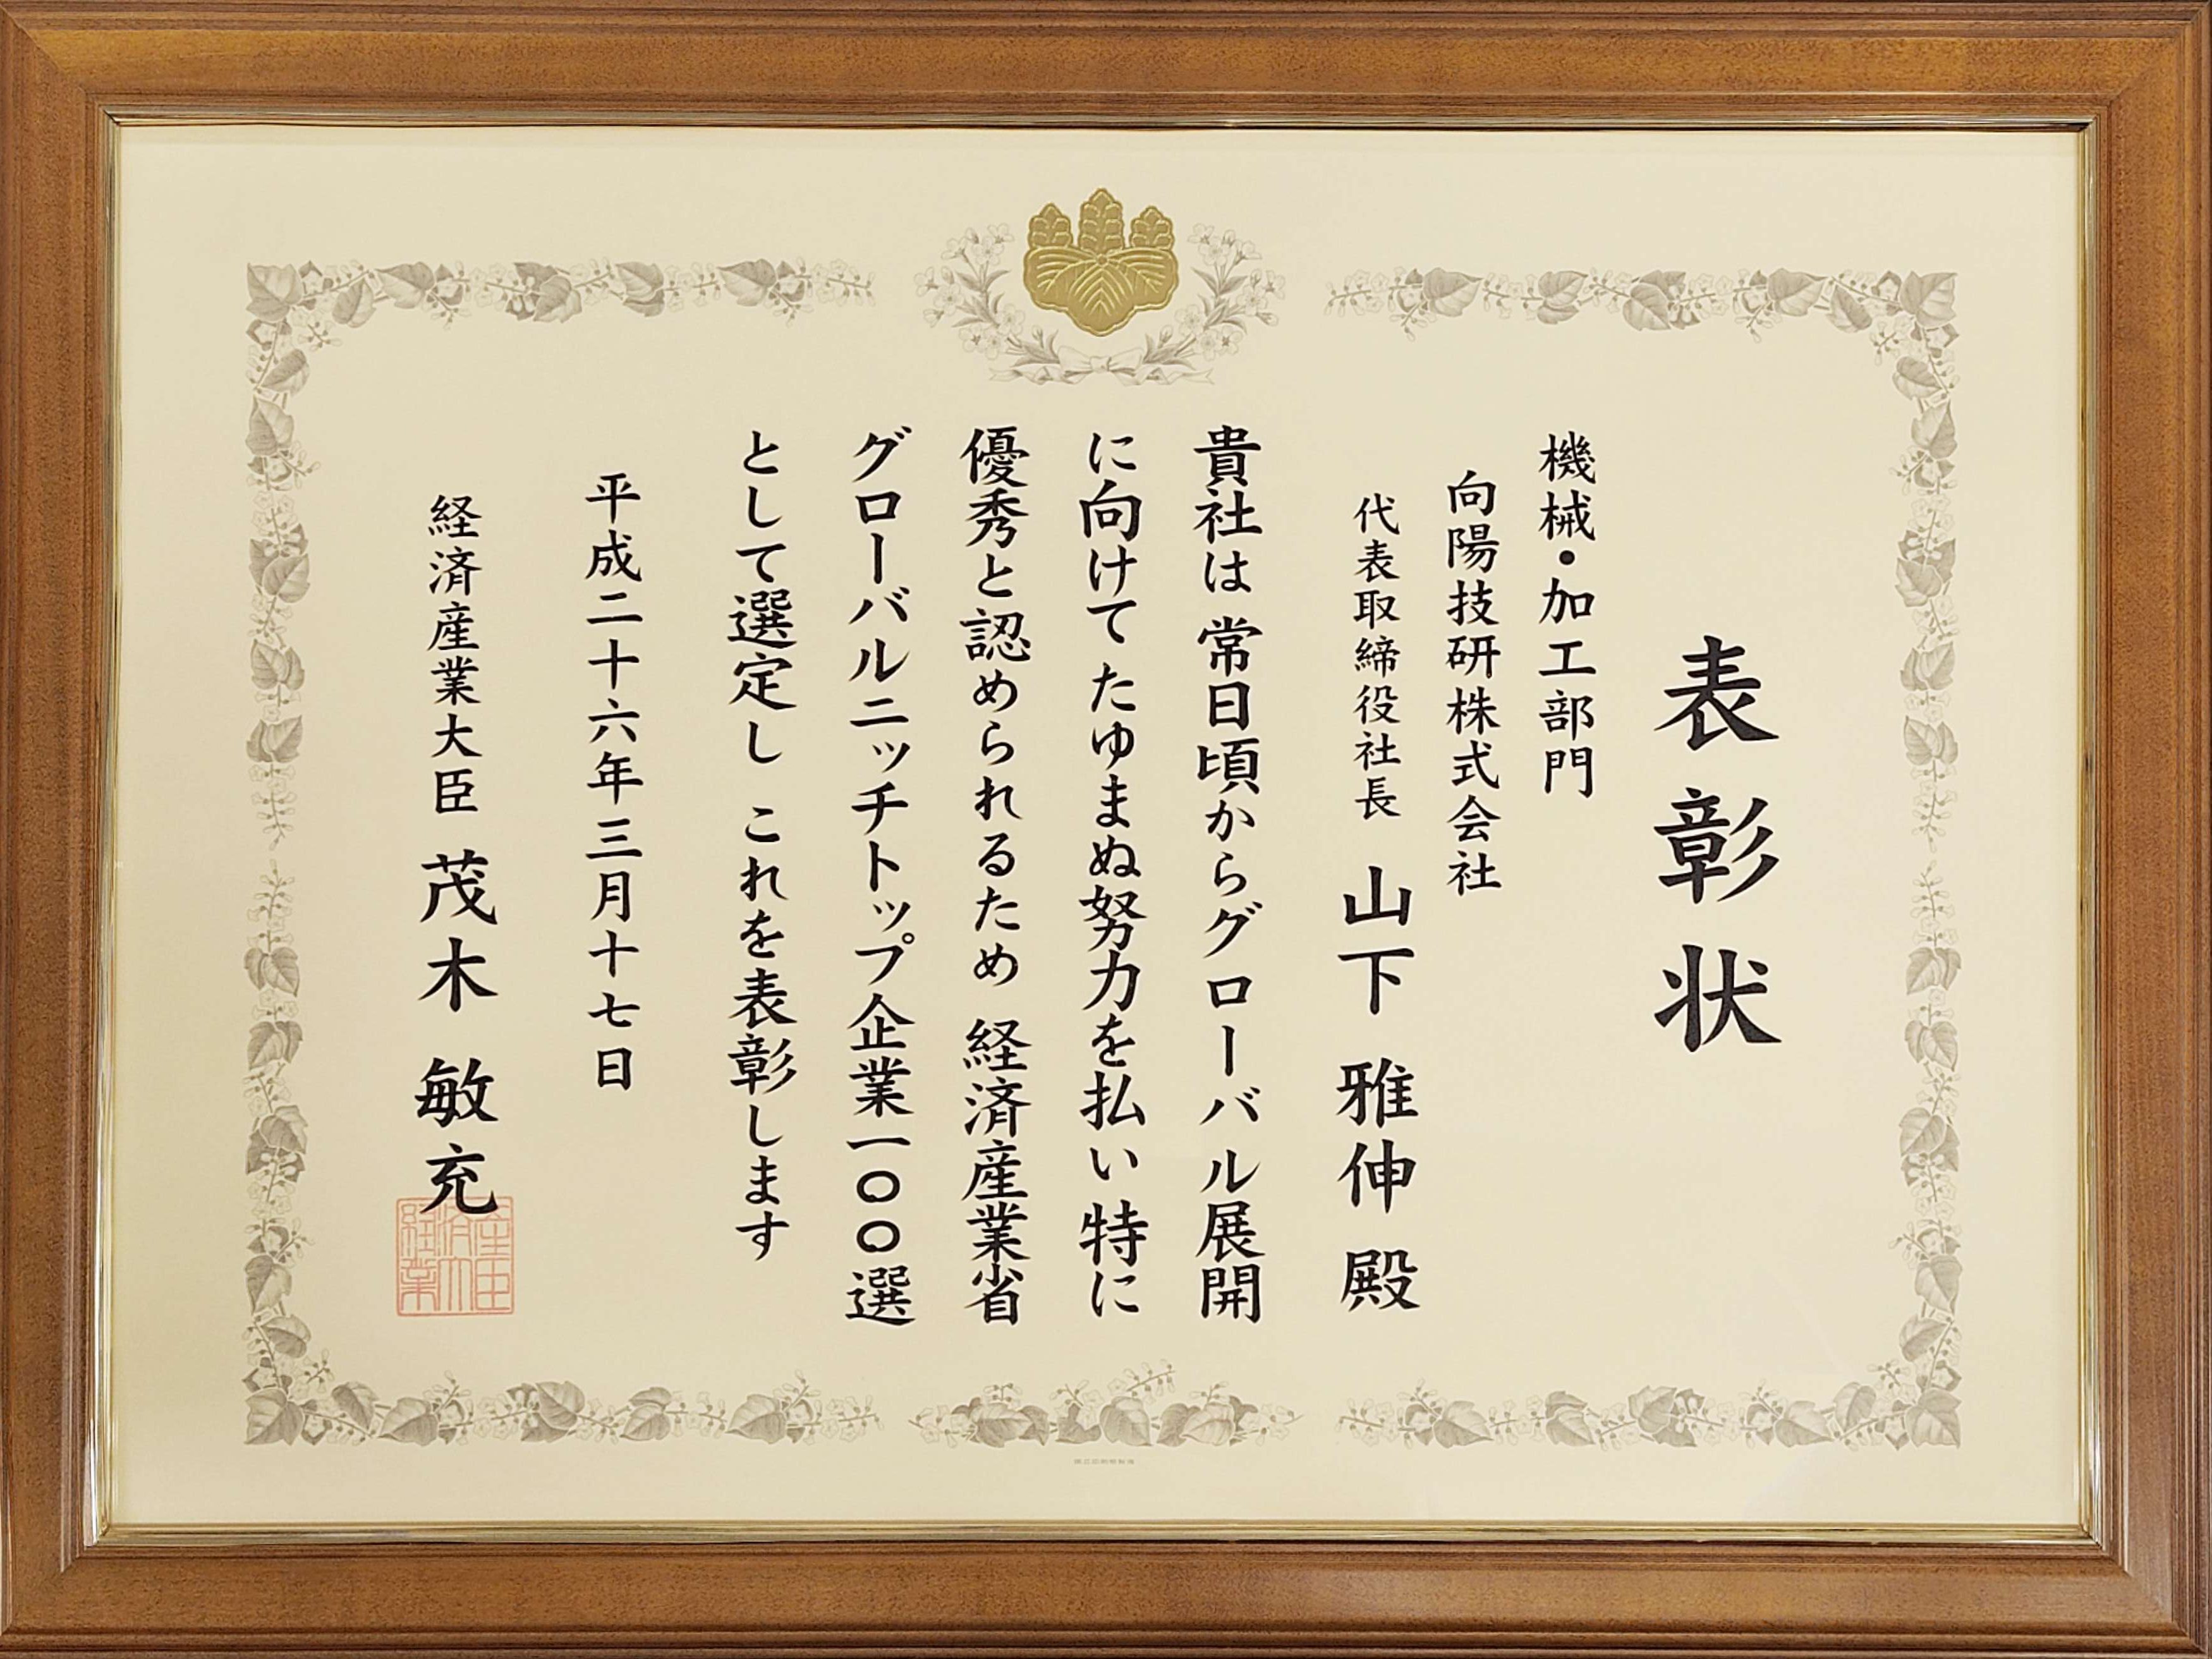 表彰状
機械・加工部門
向陽技研株式会社
代表取締役社長 山下 雅伸 殿
貴社は 常日頃からグローバル展開
に向けて たゆまぬ努力を払い 特に
優秀と認められるため 経済産業省
グローバルニッチトップ企業一〇〇選
として選定し これを表彰します
平成二十六年三月十七日
経済産業大臣 茂木 敏充